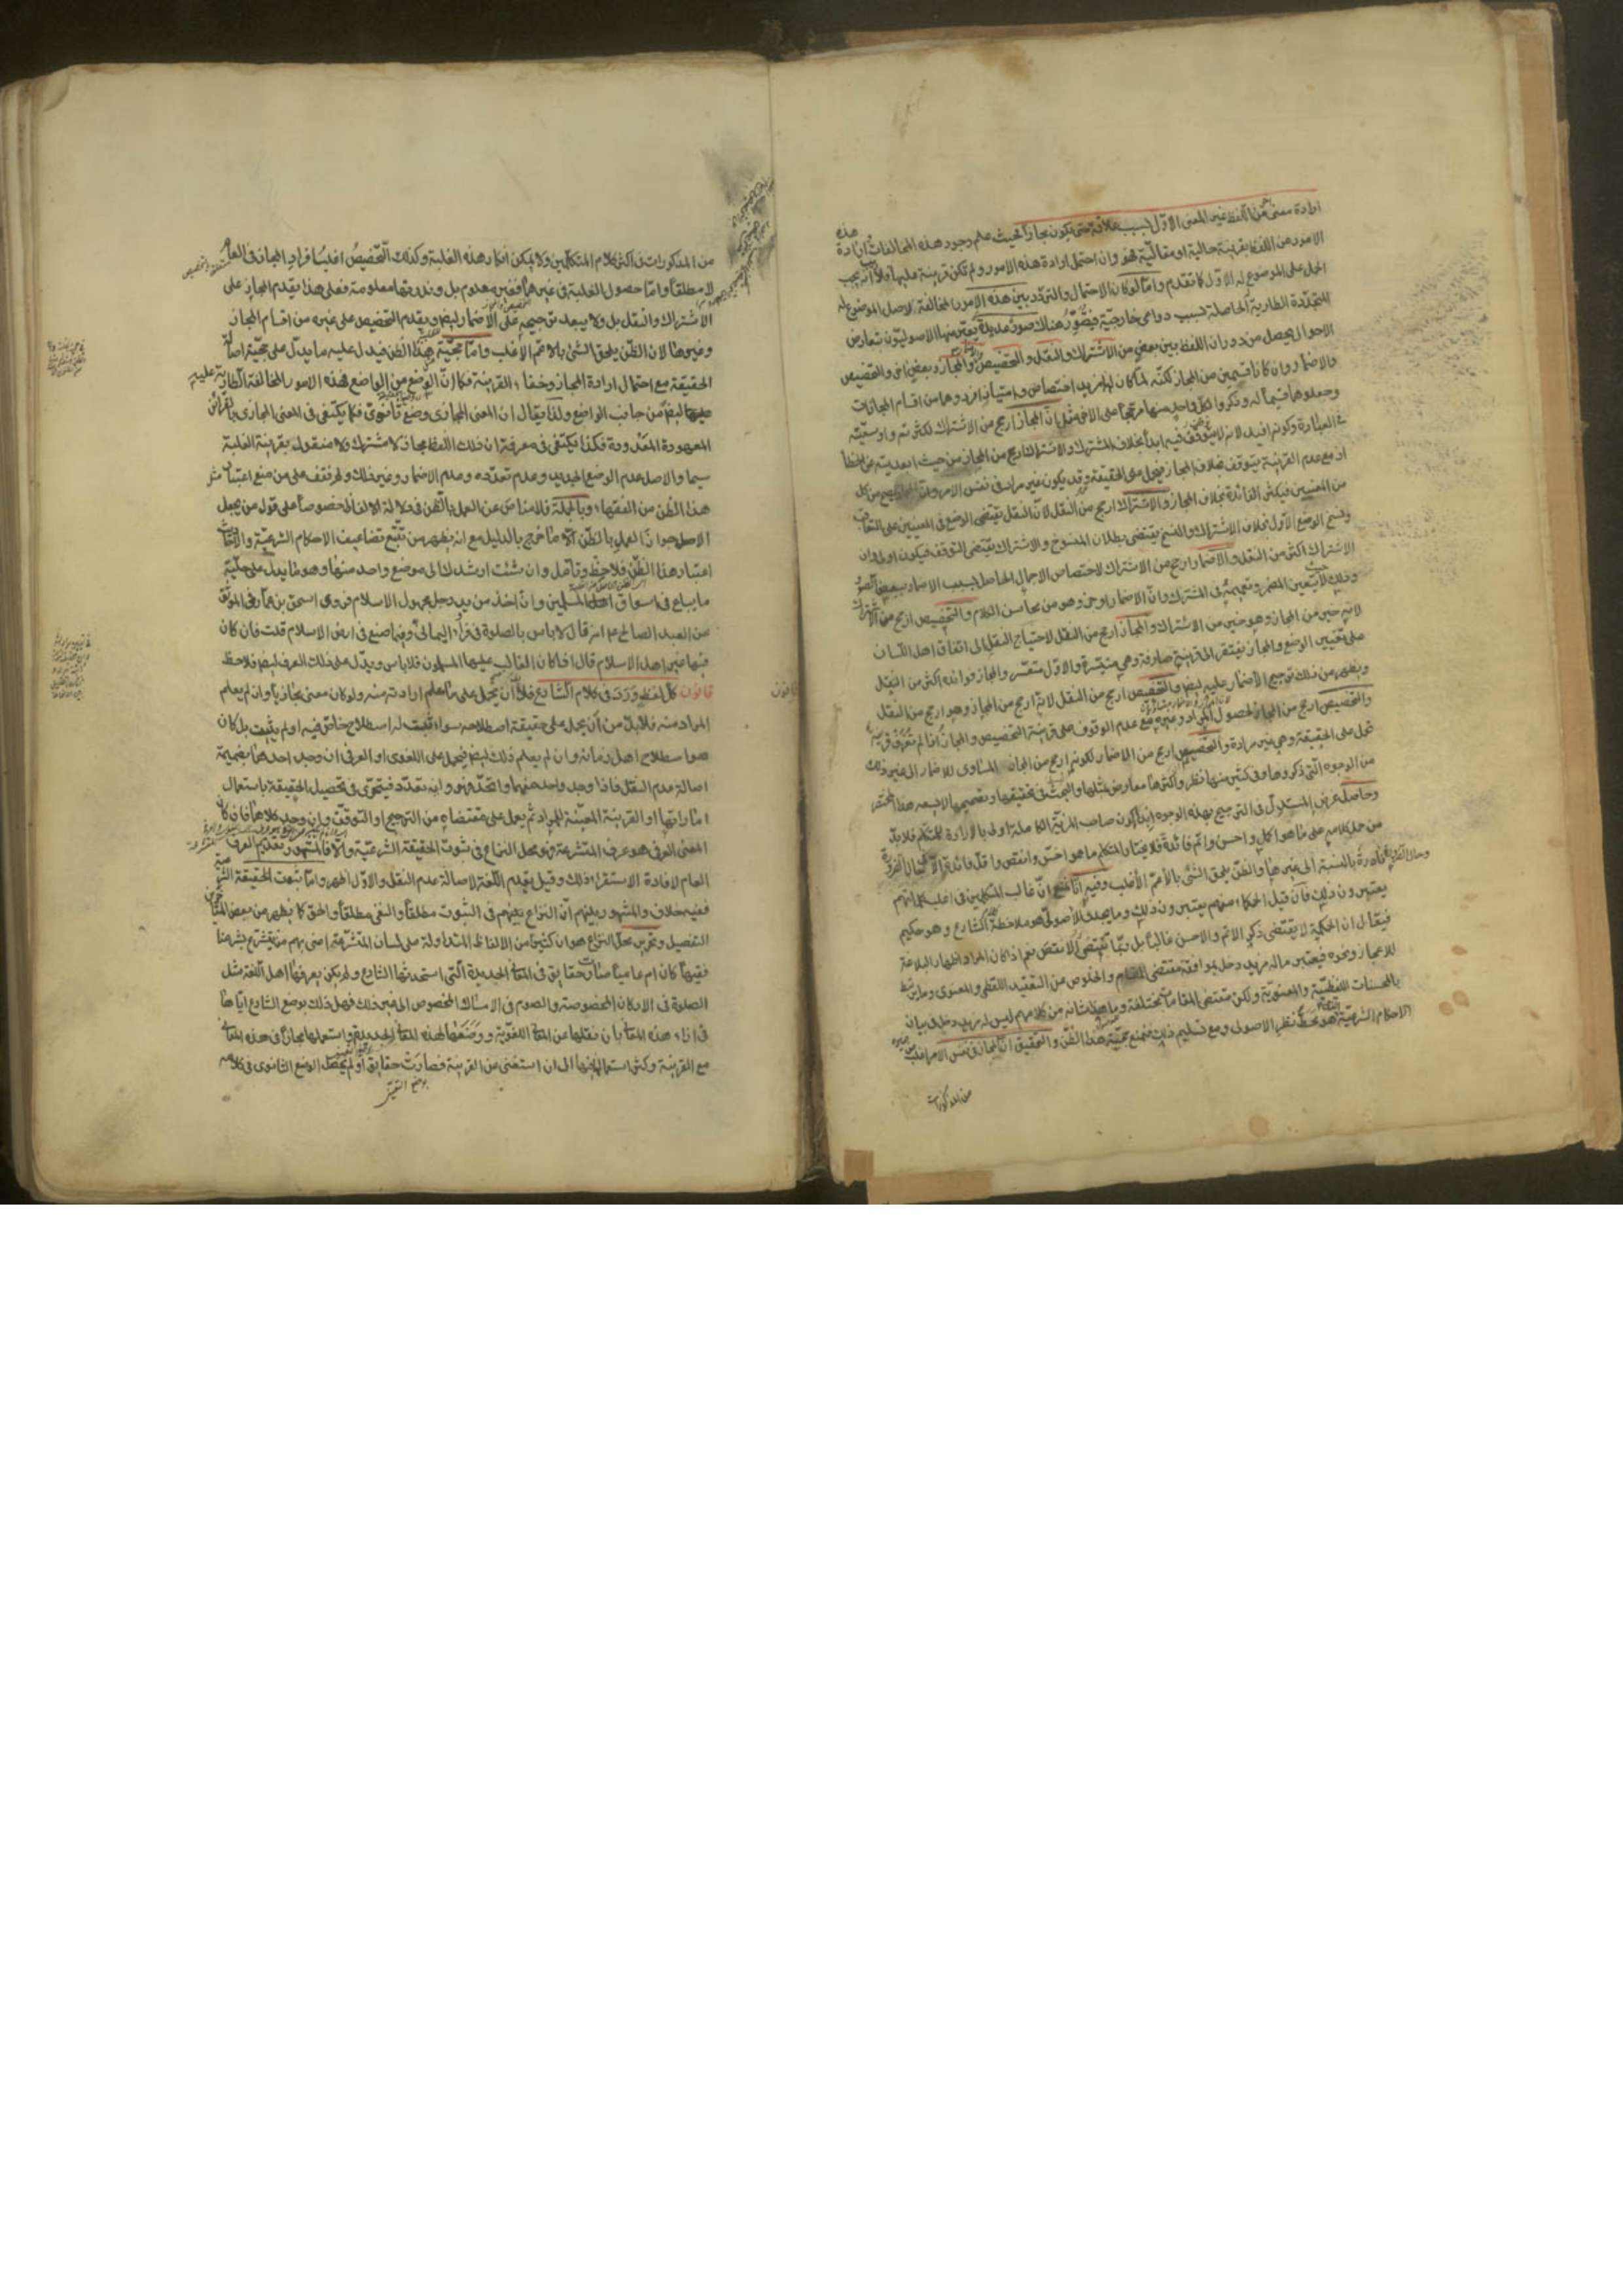 ارادة معنى من اللفظ غير المعنى الاول بسبب علاقة حتى يكون مجازا بحيث علم وجود هذه المخالفات و ارادة هذه
الامور من اللفظ بقرينة حالية او مقالية فهو وان احتمل ارادة هذه الامور ولم تكن قرينة عليها فلا ريب انه يجب
الحمل على الموضوع له الاول كما تقدم واما لو كان الاحتمال والتردد بين هذه الامور المخالفة لاصل الموضوع له
المتجددة الطارية الحاصلة بسبب دواعى خارجية فيتصور هناك صور عديدة يعبر عنها الاصوليون بتعارض
الاحوال يحصل من دوران اللفظ بين بعض من الاشتراك والنقل والتخصيص والاضمار والمجاز وبعض اخر والتخصيص
والاضمار وان كانا قسمين من المجاز لكنه لما كان لهما مزيد اختصاص وامتياز افردوهما من اقسام المجازات
وجعلوهما قسيما له وذكروا لكل واحد منها مرجحا على الاخر مثل ان المجاز ارجح من الاشتراك لكثرته واوسعيته
فى العبارة وكونه افيد لانه لا توقف فيه ابدا بخلاف المشترك والاشتراك ارجح من المجاز من حيث ابعديته عن الخطأ
اذ مع عدم القرينة يتوقف بخلاف المجاز فيحمل على الحقيقة وقد يكون غير مراد فى نفس الامر وان
من المعنيين فيكثر الفائدة بخلاف المجاز والاشتراك ارجح من النقل لان النقل يقتضى الوضع فى المعنيين على التعاقب
ونسخ الوضع الاول بخلاف الاشتراك والنسخ يقتضى بطلان المنسوخ والاشتراك يقتضى التوقف فيكون اولى وان
الاشتراك اكثر من النقل والاضمار ارجح من الاشتراك لاختصاص الاجمال الحاصل بسبب الاضمار ببعض الصور
وذلك حيث لا يتعين المضمر وتعميمه فى المشترك وان الاضمار اوجز وهو من محاسن الكلام والتخصيص ارجح من الاشتراك
لانه خير من المجاز وهو خير من الاشتراك والمجاز ارجح من النقل لاحتياج النقل الى اتفاق اهل اللسان
على تغيير الوضع والمجاز يفتقر الى قرينة صارفة وهى متيسرة والاول متعسر والمجاز فوائده اكثر من النقل
ويظهر من ذلك ترجيح الاضمار عليه ايضا والتخصيص ارجح من النقل لانه ارجح من المجاز وهو ارجح من النقل
والتخصيص ارجح من المجاز لحصول المراد وغيره مع عدم الوقوف على قرينة التخصيص والمجاز اذا لم تعرف قرينته
يحمل على الحقيقة وهى غير مرادة والتخصيص ارجح من الاضمار لكونه ارجح من المجاز المساوى للاضمار الى غير ذلك
من الوجوه التى ذكروها وفى كثير منها نظر واكثرها معارض بمثلها والبحث فى تحقيقها وتصحيحها لا يسعه هذا المختصر
وحاصل غرض المستدل فى الترجيح بهذه الوجوه ابداء كون صاحب المزية الكاملة اولى بالارادة للمتكلم فلا بد
من حمل كلامه على ما هو اكمل واحسن واتم فائدة فلا يختار المتكلم ما هو اخس وانقص واقل فائدة الا فى حال الضرورة
وحال الضرورة نادرة بالنسبة الى غيرها والظن يلحق الشئ بالاعم الاغلب وفيه انا نمنع ان غالب المتكلمين فى اغلب كلماتهم
يعتبرون ذلك فان قيل الحكماء منهم يعتبرون ذلك وما يجدى للاصولى هو ملاحظة كلام الشارع وهو حكيم
فيقال ان الحكمة لا يقتضى ذكر الاتم والاحسن غالبا بل ربما يقتضى الانقص نعم اذا كان المراد اظهار البلاغة
للاعجاز ونحوه فيعتبر ما له مزيد دخل بموافقة مقتضى المقام والخلوص من التعقيد اللفظى والمعنوى وما يرتبط
بالمحسنات اللفظية والمعنوية ولكن مقتضى المقامات مختلفة وما هذا شانه من كلامهم ليس له مزيد دخل فى بيان
الاحكام الشرعية الذى هو محط نظر الاصولى ومع تسليم ذلك فنمنع حجية هذا الظن والتحقيق ان المجاز فى نفس الامر اغلب
من المذكورات
من المذكورات فى اكثر كلام المتكلمين ولا يمكن انكار هذه الغلبة وكذلك التخصيص اغلب افراد المجاز فى العام
لا مطلقا واما حصول الغلبة فى غيرهما فغير معلوم بل وندرتها معلومة فعلى هذا يقدم المجاز على
الاشتراك والنقل بل ولا يبعد ترجيحه على الاضمار ايضا ويقدم التخصيص على غيره من اقسام المجاز
وغيرها لان الظن يلحق الشئ بالاعم الاغلب واما حجية هذا الظن فيدل عليه ما يدل على حجية اصالة
الحقيقة مع احتمال ارادة المجاز وخفاء القرينة فكما ان الوضع من الواضع فهذه الامور المخالفة الطارية عليه
ايضا من جانب الواضع ولذا يقال ان المعنى المجازى وضع ثانوى فكما يكتفى فى المعنى المجازى بالقرائن
المعهودة المعدودة فكذا يكتفى فى معرفة ان ذلك اللفظ مجاز لا مشترك ولا منقول بقرينة الغلبة
سيما والاصل عدم الوضع الجديد وعدم تعدده وعدم الاضمار وغير ذلك ولم نقف على من منع اعتبار مثل
هذا الظن من الفقهاء وبالجملة فلا مناص عن العمل بالظن فى دلالة الالفاظ خصوصا على قول من يجعل
الاصل جواز العمل بالظن الا ما خرج بالدليل مع انه يظهر من تتبع تضاعيف الاحكام الشرعية والاحاديث
اعتبار هذا الظن فلاحظ وتامل وان شئت ارشدك الى موضع واحد منها وهو ما يدل على حلية
ما يباع فى اسواق المسلمين وان اخذ من يد رجل مجهول الاسلام فروى اسحق بن عمار فى الموثق
عن العبد الصالح ع انه قال لا باس بالصلوة فى فراء اليمانى وفيما صنع فى ارض الاسلام قلت فان كان
فيها غير اهل الاسلام قال اذا كان الغالب عليها المسلمون فلا باس ويدل على ذلك العرف ايضا فلاحظ
قانون كل لفظ ورد فى كلام الشارع فلا بد ان يحمل على ما علم ارادته منه ولو كان معنى مجازيا وان لم يعلم
المراد منه فلا بد من ان يحمل على حقيقة اصطلاحه سواء ثبت له اصطلاح خاص فيه او لم يثبت بل كان
هو اصطلاح اهل زمانه وان لم يعلم ذلك ايضا فيحمل على اللغوى او العرفى ان وجد احدهما بضميمة
اصالة عدم النقل فاذا وجد واحد منهما واتحد فهو وان تعدد فيتحرى فى تحصيل الحقيقة باستعمال
اماراتها او القرينة المعينة للمراد ثم يعمل على مقتضاه من الترجيح او التوقف وان وجد كلاهما فان كان
المعنى العرفى هو عرف المتشرعة فهو محل النزاع فى ثبوت الحقيقة الشرعية والا فالمشهور تقديم العرف
العام لافادة الاستقراء ذلك وقيل يقدم اللغة لاصالة عدم النقل والاول اظهر واما ثبوت الحقيقة الشرعية
ففيه خلاف والمشهور بينهم ان النزاع بينهم فى الثبوت مطلقا والنفى مطلقا والحق كما يظهر من بعض المتاخرين
التفصيل وتحرير محل النزاع هو ان كثيرا من الالفاظ المتداولة على لسان المتشرعة اعنى بهم من يتشرع بشرعنا
فقيها كان ام عاميا صارت حقايق فى المعانى الجديدة التى استحدثها الشارع ولم يكن يعرفها اهل اللغة مثل
الصلوة فى الاركان المخصوصة والصوم فى الامساك المخصوص الى غير ذلك فهل ذلك بوضع الشارع اياها
فى ازاء هذه المعانى بان نقلها عن المعانى اللغوية ووضعها لهذه المعانى الجديدة او استعملها مجازا فى هذه المعانى
مع القرينة وكثر استعمالها فيها الى ان استغنى عن القرينة فصارت حقايق او لم يحصل الوضع الثانوى فى كلامه
قانون